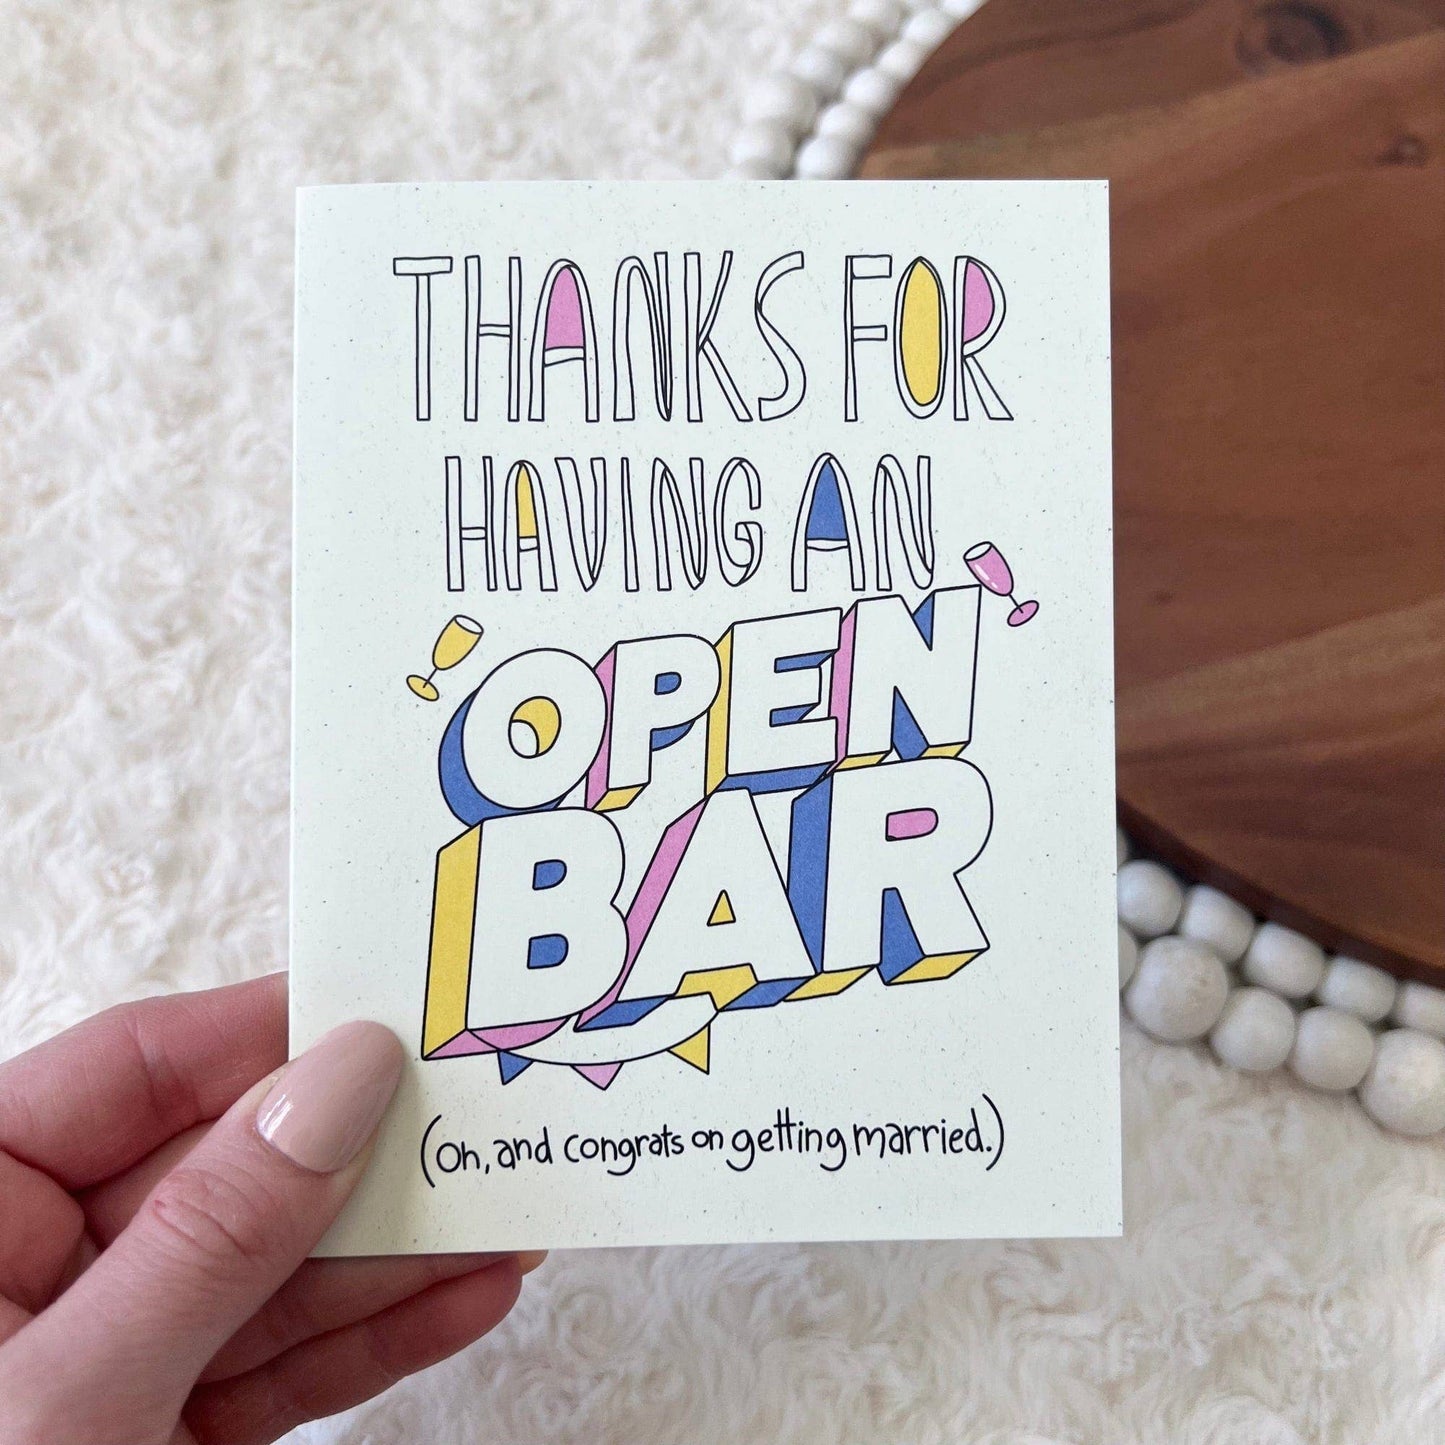 THANKS FOR
HAVING AN
OPEN
BAR
(Oh, and congrats on getting married.)